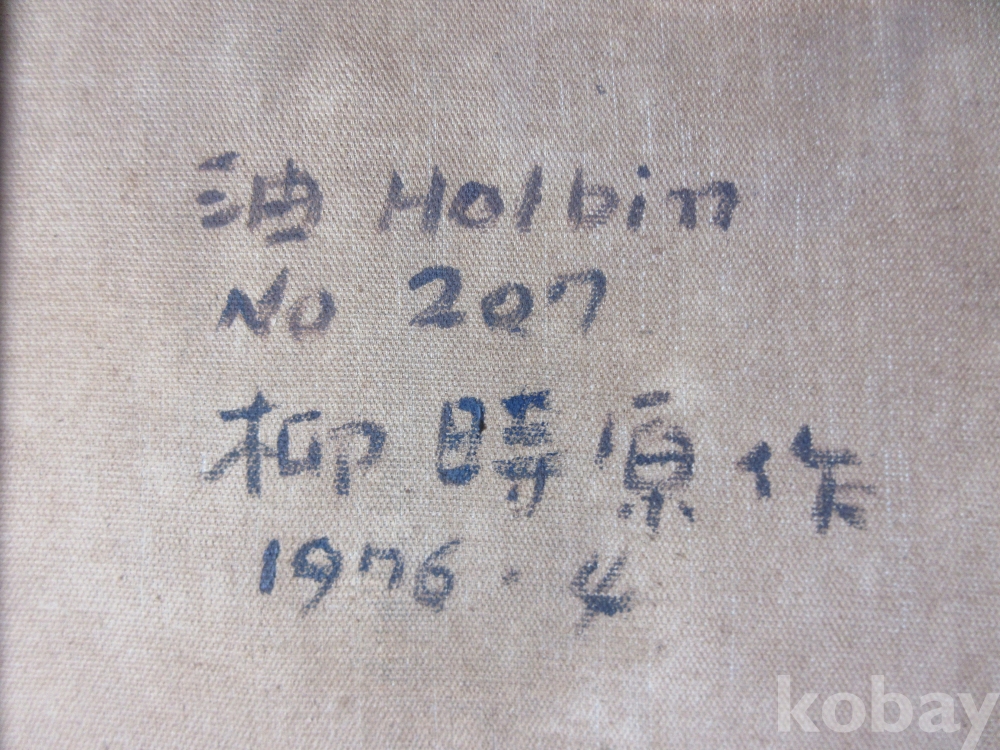 油 Holbin
No 207
柳時原作
1976.4
kobay